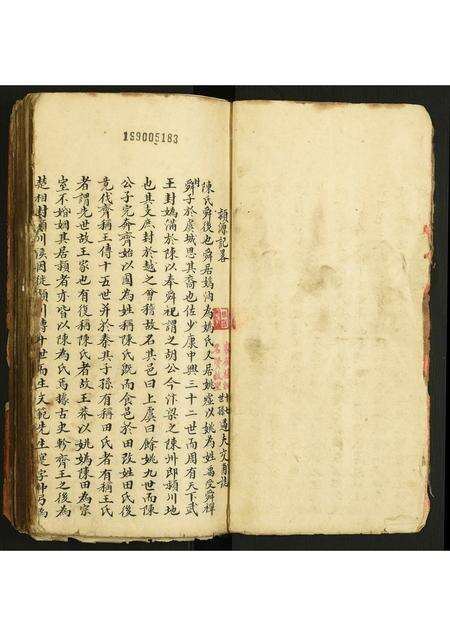 189005183
潁源記畧
陳氏舜後也舜居媯汭為媯氏又居姚墟以姚為姓禹受舜禪
舜子於虞城思其裔也佐少康中興三十二世而周有天下武
王封媯滿於陳以奉舜祀謂之胡公今汴梁之陳州郎潁川地
也其支庶封於越之會稽故名其邑曰上虞曰餘姚九世而陳
公子完奔齊始以國為姓稱陳氏旣而食邑於田改姓田氏後
竟代齊稱王傳十五世并於秦其子孫有稱田氏者有稱王氏
者謂先世故王家也有復稱陳氏者故王莽以姚媯陳田為宗
室不婚姻其居潁者亦皆以陳為氏焉據古史軫齊王之後為
楚相封潁川侯因徙潁川傳十世而生文範先生寔字仲弓為